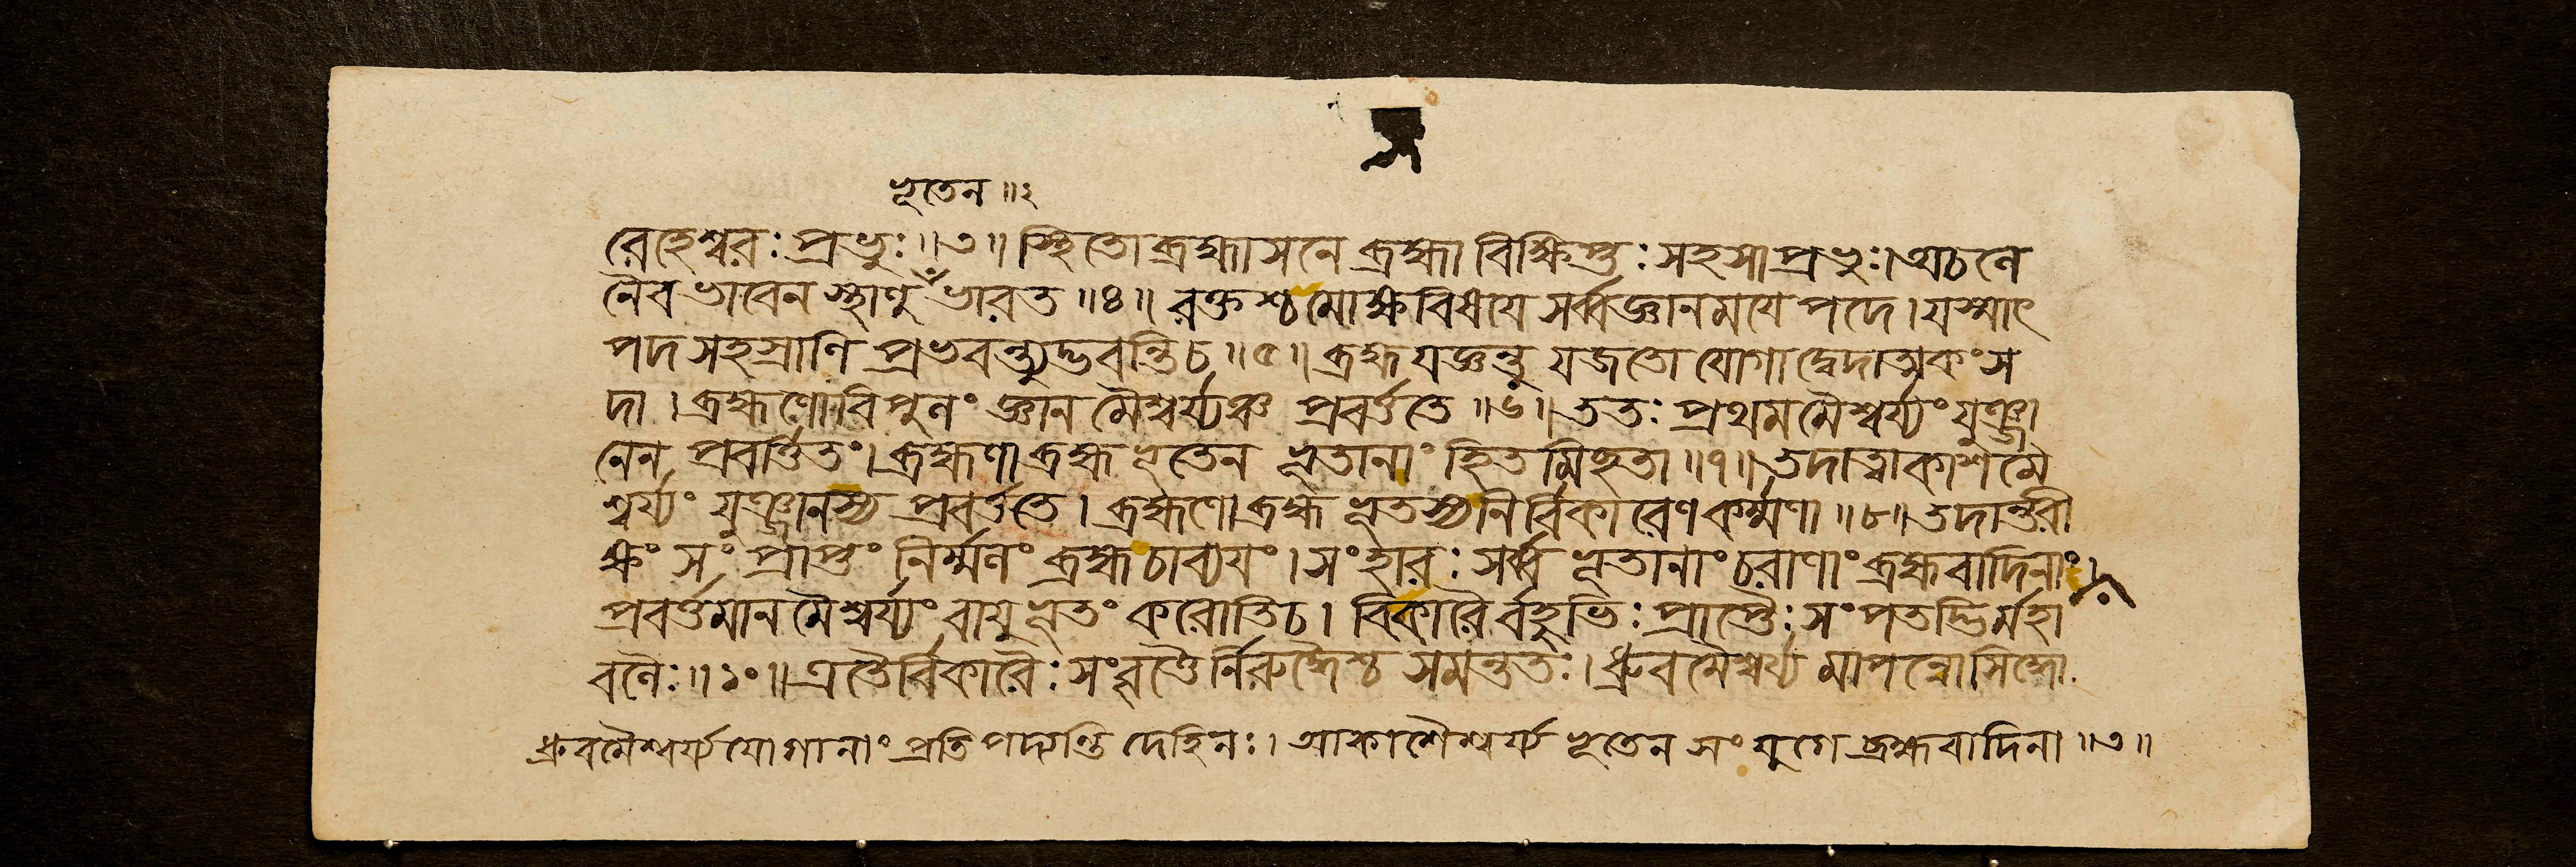 ভূতেন ॥ ২
রেহেশ্বরঃ প্রভুঃ ॥ ৩ ॥ স্থিতো ব্রহ্মাসনে ব্রহ্মা বিক্ষিপ্তঃ সহসা প্রভুঃ । অচনে
নৈব ভাবেন স্থাণু ভারত ॥ ৪ ॥ রক্তশ্চ মোক্ষবিষয়ে সর্ব্বজ্ঞানময়ে পদে । যস্মাৎ
পদসহস্রাণি প্রভবন্ত্যুদ্ভবন্তি চ ॥ ৫ ॥ ব্রহ্মযজ্ঞন্তু যজতো যোগাদ্বেদাত্মকং স
দা । ব্রহ্মণো বিপুনং জ্ঞানমৈশ্বর্য্যঞ্চ প্রবর্ততে ॥ ৬ ॥ ততঃ প্রথমমৈশ্বর্য্যং যুঞ্জা
নেন প্রবর্ত্তিতং । ব্রহ্মণা ব্রহ্মভূতেন ভূতানাং হিতমিছতা ॥ ৭ ॥ তদাত্বাকাশমৈ
শ্বর্য্যং যুঞ্জানস্য প্রবর্ততে । ব্রহ্মণো ব্রহ্মভূতস্য নির্বিকারেণ কর্ম্মণা ॥ ৮ ॥ তদান্তরী
ক্ষং সংপ্রাপ্তং নির্ম্মনং ব্রহ্ম চাব্যয়ং । সংহারঃ সর্ব্বভূতানাং চরাণাং ব্রহ্মবাদিনাং ।
প্রবর্ত্তমানমৈশ্বর্য্যং বায়ুভূতং করোতি চ । বিকারৈর্বহুভিঃ প্রাপ্তৈঃ সংপতদ্ভির্মহা
বনৈঃ ॥ ১০ ॥ এতৈর্বিকারৈঃ সংবৃতৈর্নিরুদ্ধৈশ্চ সমন্ততঃ । ধ্রুবমৈশ্বর্য্যমাপন্নো সিদ্ধো
ধ্রুবমৈশ্বর্য্যযোগানাং প্রতিপদ্যন্তি দেহিনঃ । আকাশৈশ্বর্য্যভূতেন সংযুগে ব্রহ্মবাদিনা ॥ ৩ ॥